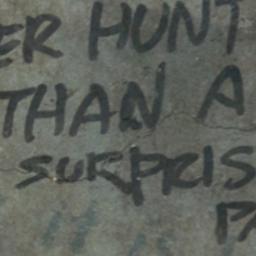 ER HUNT
THAN A
SURPRIS
PA